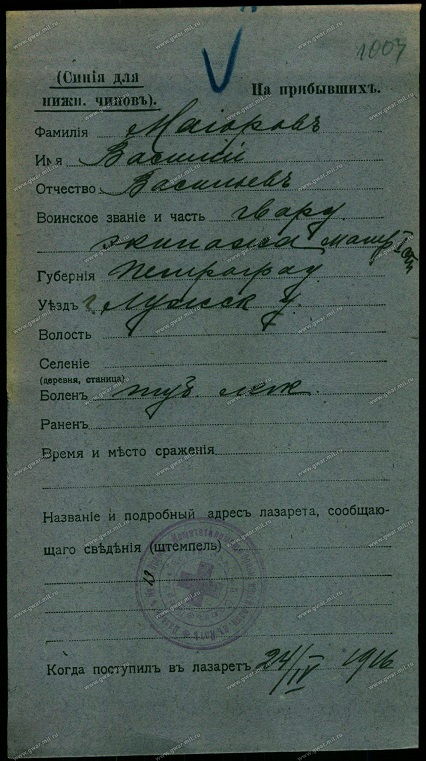 1007
(Синія для
нижн. чиновъ).
На прибывшихъ.
Фамилія Маіоровъ
Имя Василий
Отчество Васильевъ
Воинское званіе и часть гвард.
экипажа матр I ст
Губернія Петроград
Уѣздъ г. Лужск у.
Волость
Селеніе
(деревня, станица)
Боленъ туб. легк.
Раненъ
Время и мѣсто сраженія
Названіе и подробный адресъ лазарета, сообщаю-
щаго свѣдѣнія (штемпель)
Когда поступилъ въ лазаретъ 24/IV 1916
www.gwar.mil.ru